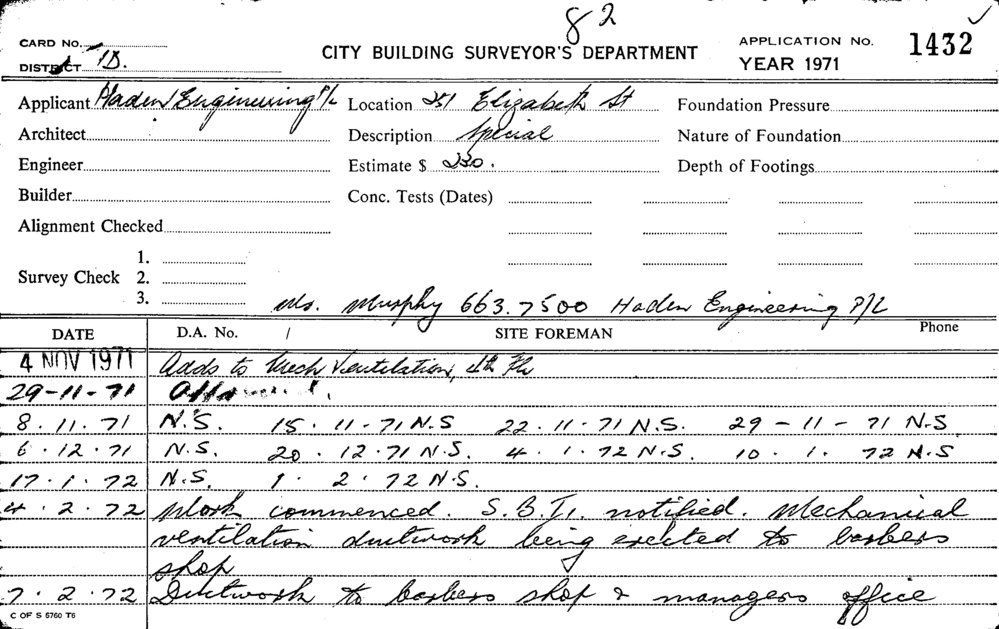 82
CARD No.
DISTRICT 1D.
CITY BUILDING SURVEYOR'S DEPARTMENT
APPLICATION No. 1432
YEAR 1971
Applicant Haden Engineering P/L Location 251 Elizabeth St Foundation Pressure
Architect Description Special Nature of Foundation
Engineer Estimate $ 220. Depth of Footings
Builder Conc. Tests (Dates)
Alignment Checked
Survey Check 1.
2.
3.
Ms. Murphy 663.7500 Haden Engineering P/L
DATE D.A. No. / SITE FOREMAN Phone
4 NOV 1971 Adds to Mech Ventilation, 4th Flr
29-11-71
8.11.71 N.S. 15.11-71 N.S 22.11-71 N.S. 29-11-71 N.S
6.12.71 N.S. 20.12.71 N.S. 4.1.72 N.S. 10.1.72 N.S
17.1.72 N.S. 1.2.72 N.S.
4.2.72 Work commenced. S.B.I. notified. Mechanical
ventilation ductwork being erected to barbers
shop
7.2.72 Ductwork to barbers shop & managers office
C OF S 5760 T6